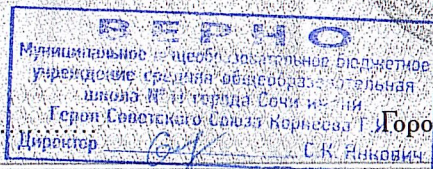 ВЕРНО
Муниципальное бюджетное
учреждение средняя общеобразовательная
школа города Сочи имени
Героя Советского Союза Корнеева Г.
Горо
Директор С.К. Янкович